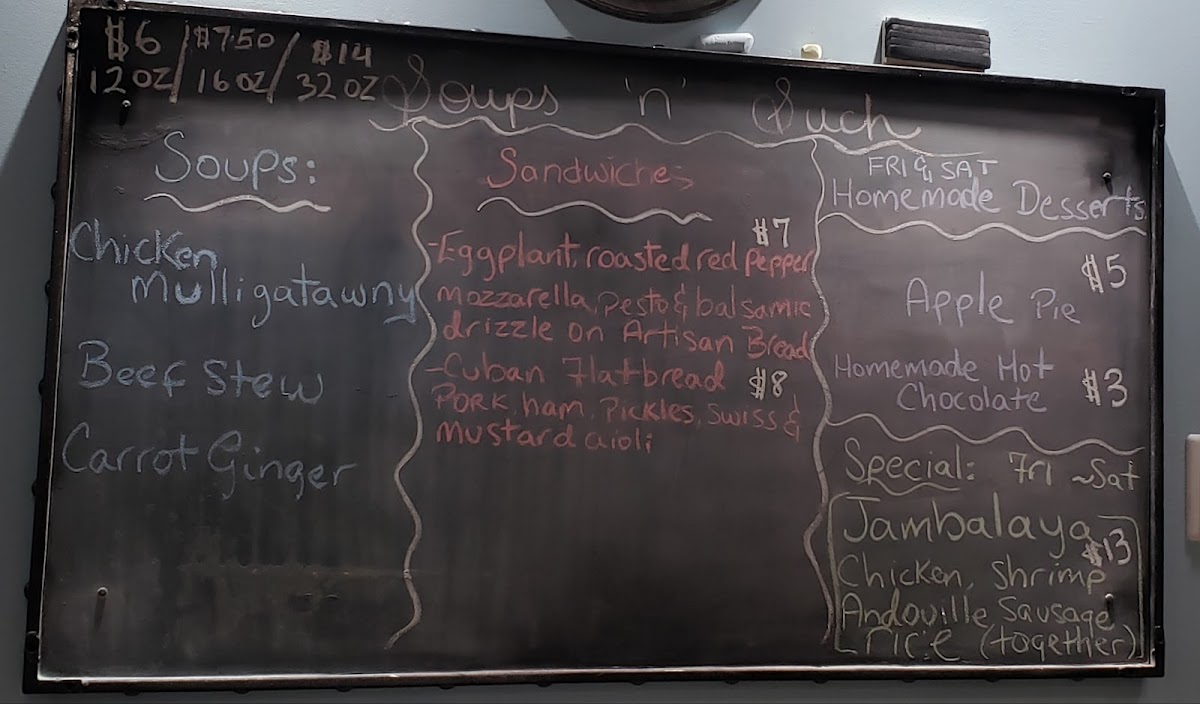 $6 / $7.50 / $14
12 OZ / 16 OZ / 32 OZ
Soups 'n' Such
Soups:
Chicken
Mulligatawny
Beef Stew
Carrot Ginger
Sandwiches
$7
-Eggplant, roasted red pepper
mozzarella, pesto & balsamic
drizzle on Artisan Bread
-Cuban Flatbread $8
Pork, ham, Pickles, Swiss &
mustard aioli
FRI & SAT
Homemade Desserts
$5
Apple Pie
Homemade Hot
Chocolate $3
Special: Fri ~Sat
Jambalaya
$13
Chicken, Shrimp
Andouille Sausage
rice (together)